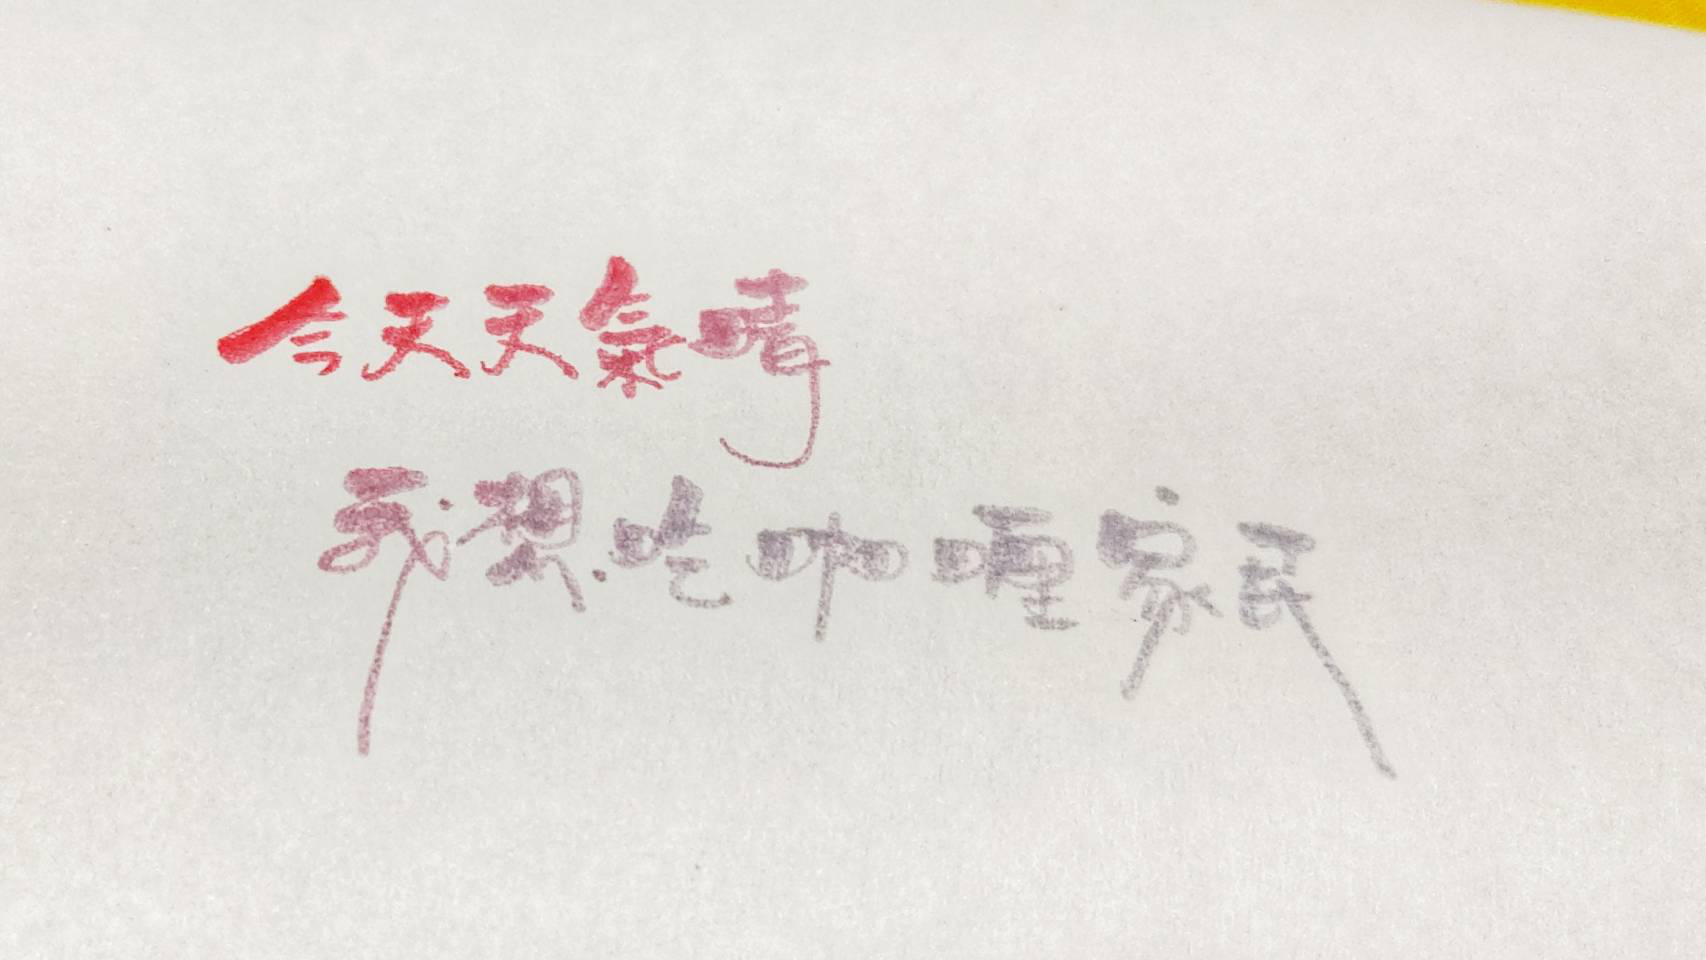 今天天氣晴
我想吃咖喱家民